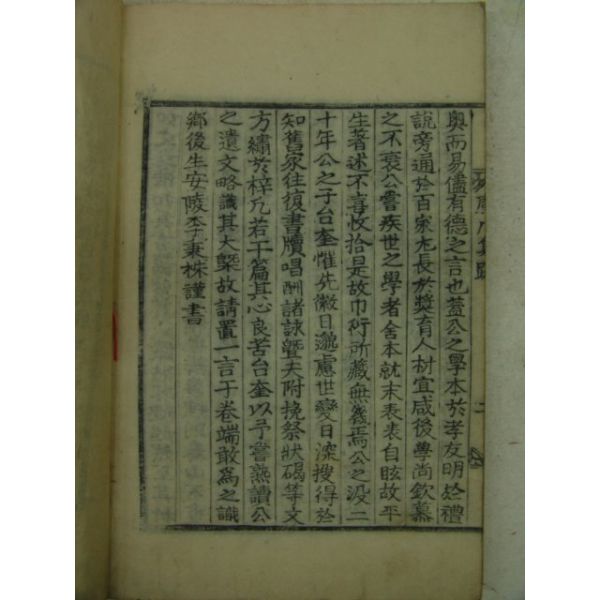 奧而易儘有德之言也蓋公之學本於孝友明於禮
說旁通於百家尤長於奬育人材宜咸後學尚欽慕
之不衰公嘗疾世之學者舍本就末表表自眩故平
生著述不喜收拾是故巾衍所藏無幾焉公之沒二
十年公之子台奎惟先徽日邈慮世變日深搜得於
知舊家往復書牘唱酬諸詠曁夫附挽祭狀碣等文
方繡於梓凡若干篇其心良苦台奎以予嘗熟讀公
之遺文略識其大槩故請置一言于卷端敢爲之識
鄕後生安陵李秉株謹書